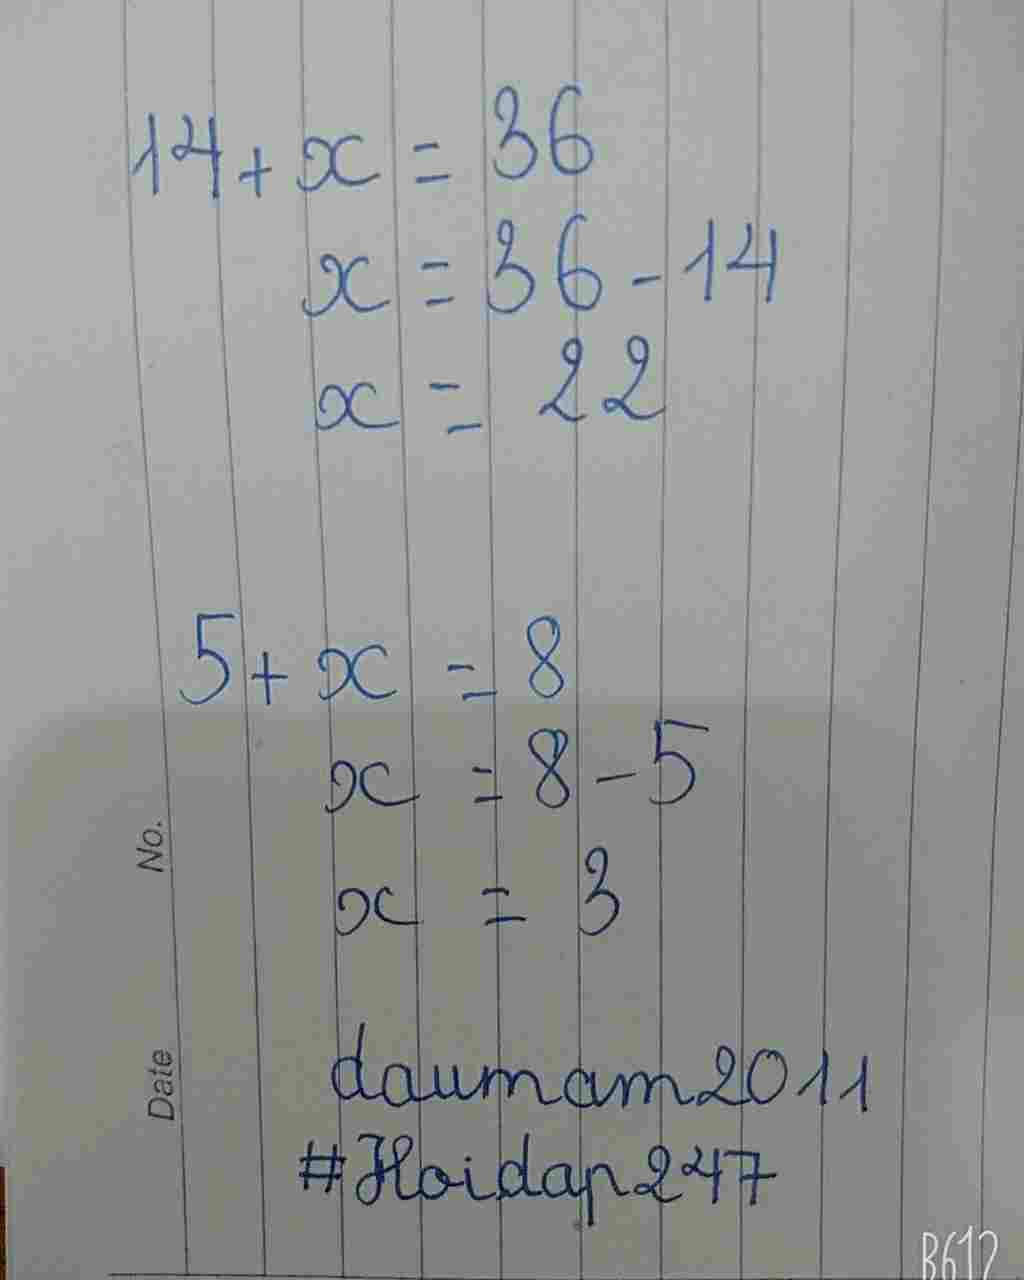 14 + x = 36
x = 36 - 14
x = 22
5 + x = 8
x = 8 - 5
x = 3
No.
Date
daumam2011
#Hoidap247
B612